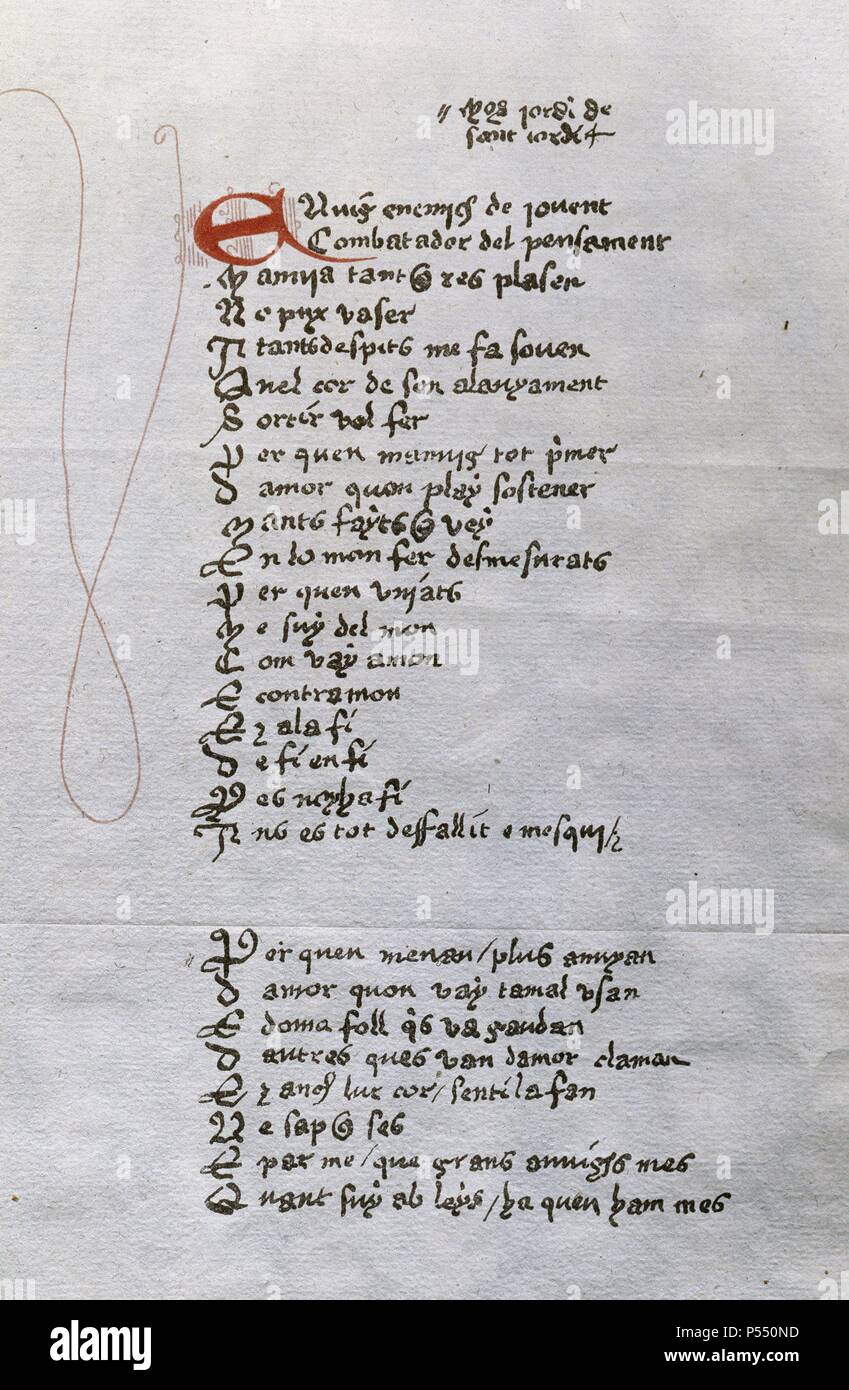 // moss iordi de
sant iordi
ENuig enemich de iovent
Combatador del pensament
M amiia tant q res plasen
N o pux vaser
I tants despits me fa soven
Q nel cor de son alanyament
S ortir vol fer
P er quen mannig tot pmer
d amor quon play sostener
M ants fayts q vey
E n lo mon fer desmesurats
P er quen uyats
M e suy del mon
C om vay amon
E contramon
E z ala fi
d e fi en fi
P es noy ha fi
I ns es tot deffallit e mesqui
P er quen menan / plus annyan
d amor quon vay tamal vsan
E dona foll qs va gaudan
d autres ques van damor claman
E z anch lur cor / senti lafan
N e sap q ses
E par me / que grans annighs mes
Q uant suy ab leys / ha quen ham mes
alamy
Image ID: P550ND
www.alamy.com